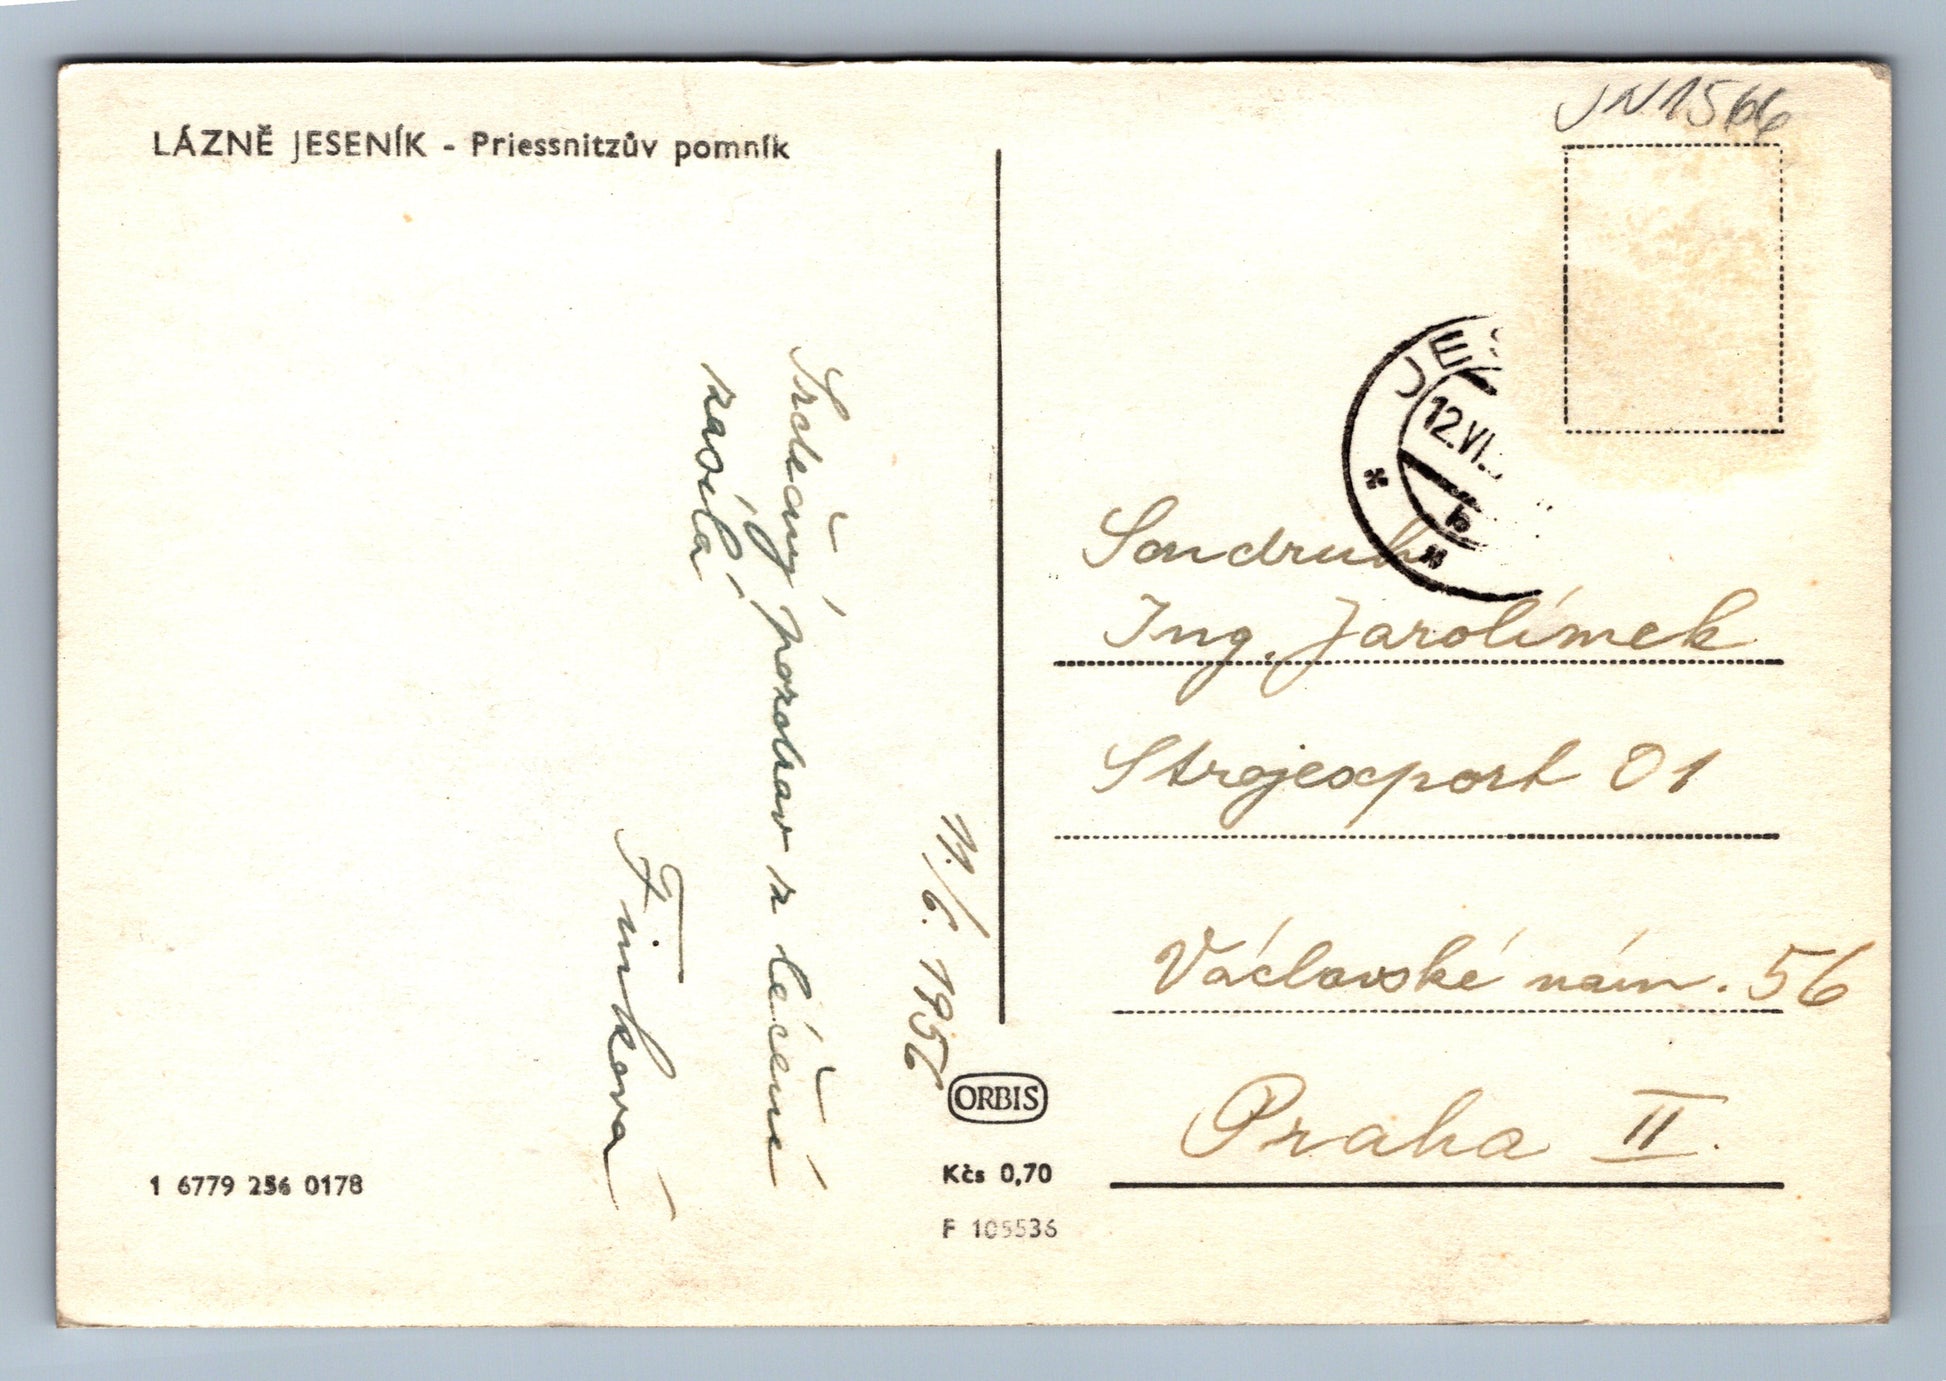 LÁZNĚ JESENÍK - Priessnitzův pomník
11./6. 1956
Srdečný pozdrav z léčení
zasílá
Finková
1 6779 256 0178
ORBIS
Kčs 0,70
F 105536
JN1566
JES
12.VI.
b
Soudruh
Ing. Jarolímek
Strojexport 01
Václavské nám. 56
Praha II.